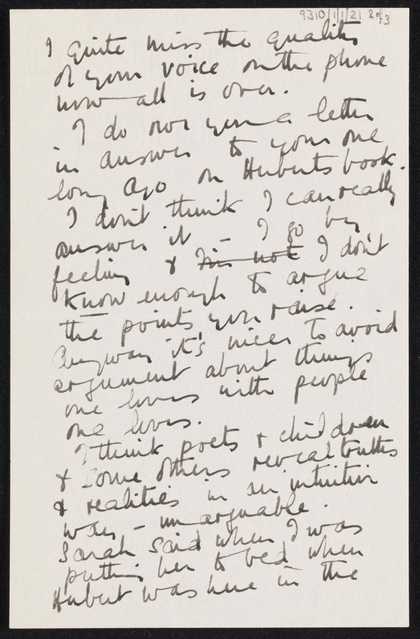 9310/1/1/21 2 of 3
I quite miss the quality
of your voice on the phone
now all is over.
I do owe you a letter
in answer to your one
long ago on Huberts book.
I don't think I can really
answer it - I go by
feeling & I'm not I don't
know enough to argue
the points you raise.
Anyway it's nicer to avoid
argument about things
one loves with people
one loves.
I think poets & children
& some others reveal truths
& realities in an intuitive
way - unarguable.
Sarah said when I was
putting her to bed when
Hubert was here in the